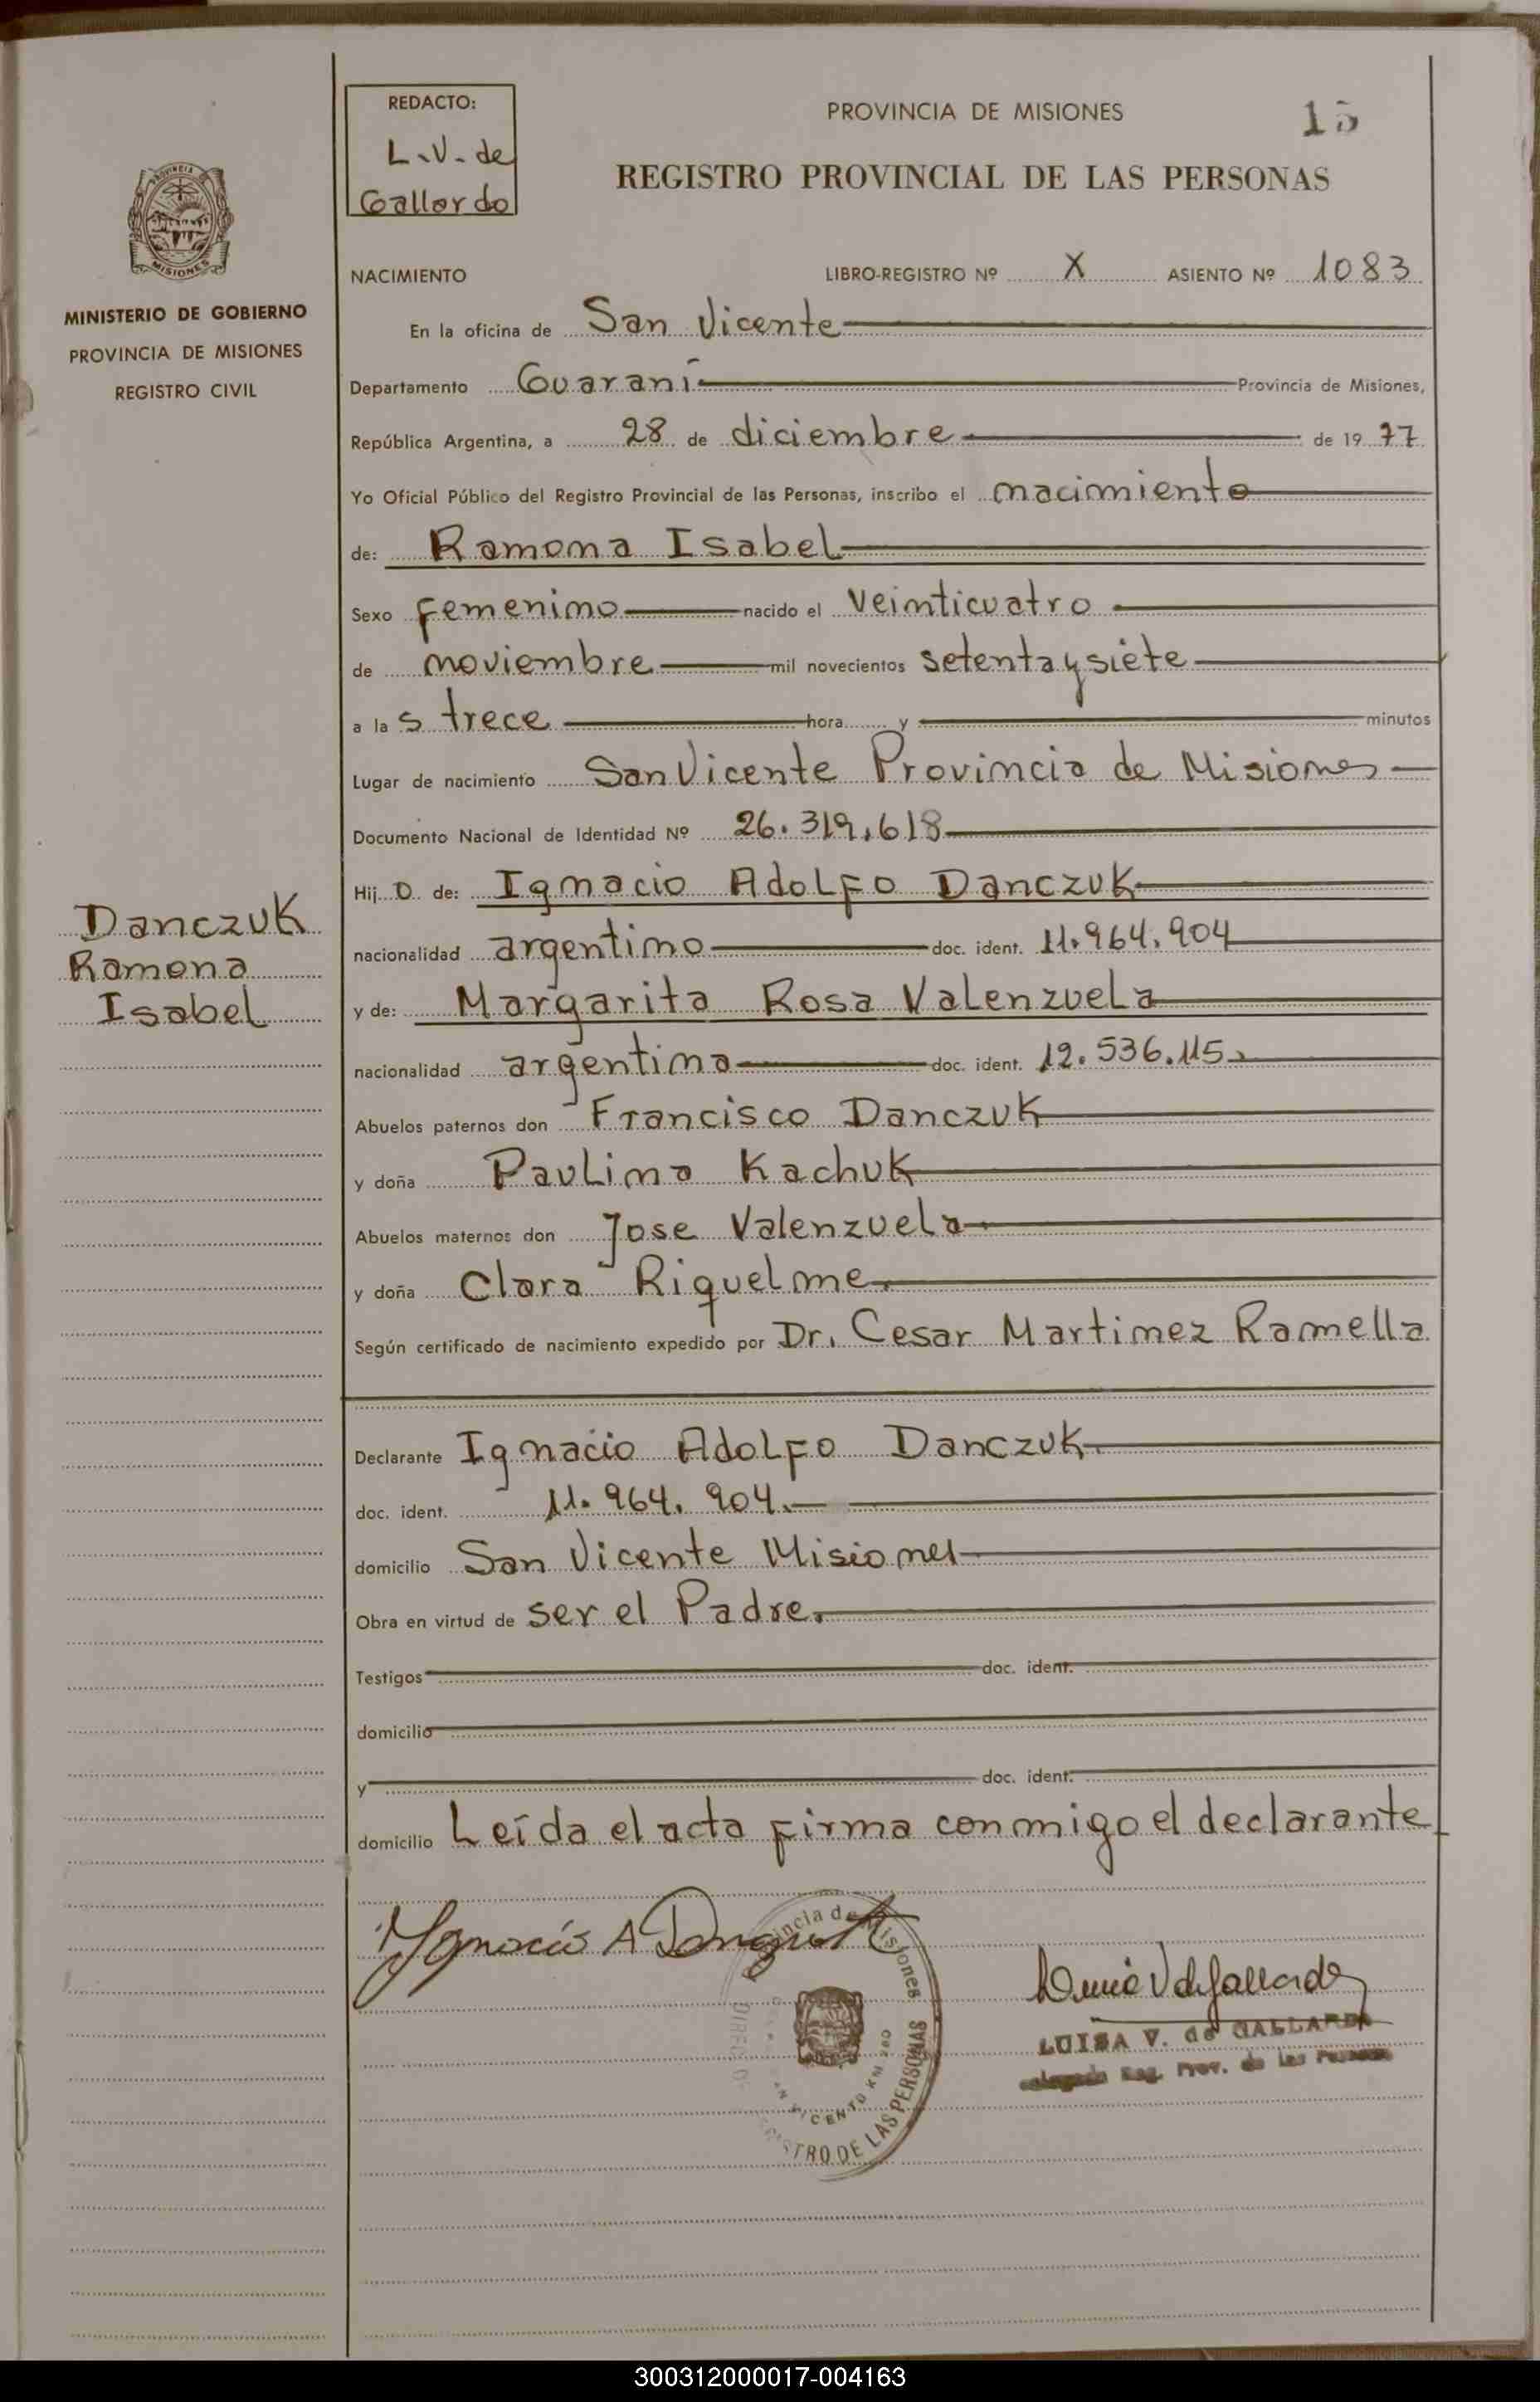 REDACTO:
L.V. de
Gallardo
PROVINCIA DE MISIONES
15
REGISTRO PROVINCIAL DE LAS PERSONAS
PROVINCIA
MISIONES
MINISTERIO DE GOBIERNO
PROVINCIA DE MISIONES
REGISTRO CIVIL
NACIMIENTO LIBRO-REGISTRO Nº X ASIENTO Nº 1083
En la oficina de San Vicente
Departamento Guaraní Provincia de Misiones,
República Argentina, a 28 de diciembre de 1977
Yo Oficial Público del Registro Provincial de las Personas, inscribo el nacimiento
de: Ramona Isabel
Sexo femenino nacido el veinticuatro
de noviembre mil novecientos setenta y siete
a las trece hora y minutos
Lugar de nacimiento San Vicente Provincia de Misiones
Documento Nacional de Identidad Nº 26.319.618
Danczuk
Ramona
Isabel
Hij o de: Ignacio Adolfo Danczuk
nacionalidad argentino doc. ident. 11.964.904
y de: Margarita Rosa Valenzuela
nacionalidad argentina doc. ident. 12.536.115
Abuelos paternos don Francisco Danczuk
y doña Paulina Kachuk
Abuelos maternos don Jose Valenzuela
y doña Clara Riquelme
Según certificado de nacimiento expedido por Dr. Cesar Martinez Ramella
Declarante Ignacio Adolfo Danczuk
doc. ident. 11.964.904.
domicilio San Vicente Misiones
Obra en virtud de ser el Padre.
Testigos doc. ident.
domicilio
y doc. ident.
domicilio Leída el acta firma conmigo el declarante
Ygnacio A Danczuk
Luisa V de Gallardo
LUISA V. de GALLARDO
Reg. Prov. de las Personas
de Misiones
DE LAS PERSONAS
300312000017-004163